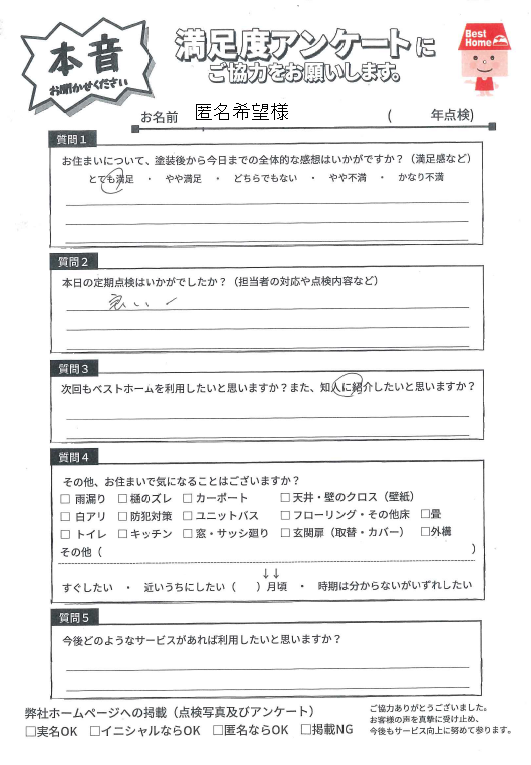 本音
お聞かせください
満足度アンケートに
ご協力をお願いします。
Best Home
お名前 匿名希望様 ( 年点検)
質問1
お住まいについて、塗装後から今日までの全体的な感想はいかがですか?(満足感など)
とても満足 ・ やや満足 ・ どちらでもない ・ やや不満 ・ かなり不満
質問2
本日の定期点検はいかがでしたか?(担当者の対応や点検内容など)
質問3
次回もベストホームを利用したいと思いますか?また、知人に紹介したいと思いますか?
質問4
その他、お住まいで気になることはございますか?
□ 雨漏り □ 樋のズレ □ カーポート □ 天井・壁のクロス(壁紙)
□ 白アリ □ 防犯対策 □ ユニットバス □ フローリング・その他床 □畳
□ トイレ □ キッチン □ 窓・サッシ廻り □ 玄関扉(取替・カバー) □外構
その他( )
↓↓
すぐしたい ・ 近いうちにしたい( )月頃 ・ 時期は分からないがいずれしたい
質問5
今後どのようなサービスがあれば利用したいと思いますか?
弊社ホームページへの掲載(点検写真及びアンケート)
□実名OK □イニシャルならOK □匿名ならOK □掲載NG
ご協力ありがとうございました。
お客様の声を真摯に受け止め、
今後もサービス向上に努めて参ります。